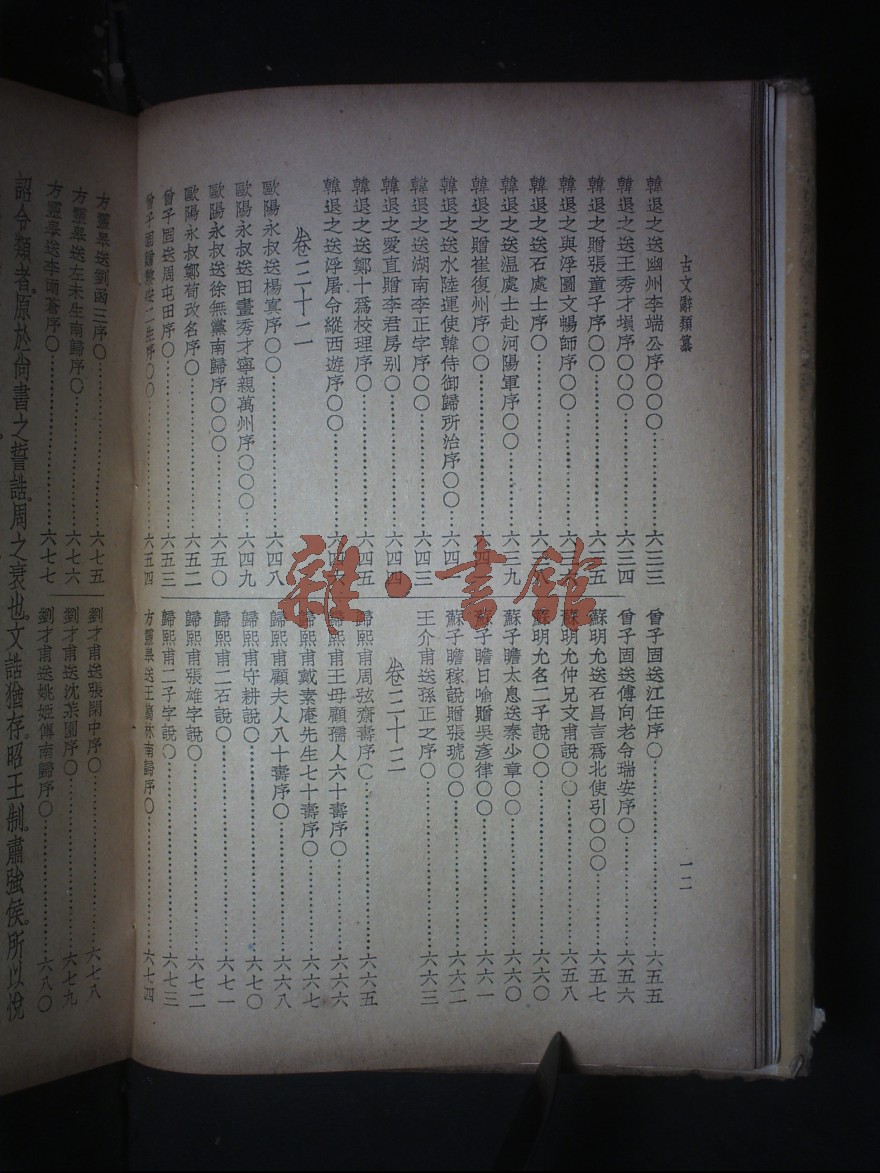 古文辭類纂
一二
韓退之送幽州李端公序〇〇〇……六三三
韓退之送王秀才塤序〇〇〇……六三四
韓退之贈張童子序〇〇……六三五
韓退之與浮圖文暢師序〇〇〇……六三
韓退之送石處士序〇……六三
韓退之送温處士赴河陽軍序〇〇……六三九
韓退之贈崔復州序〇〇……六四
韓退之送水陸運使韓侍御歸所治序〇〇……六四一
韓退之送湖南李正字序〇〇……六四三
韓退之愛直贈李君房别〇……六四四
韓退之送鄭十爲校理序〇……六四五
韓退之送浮屠令縱西遊序〇……六四六
卷三十二
歐陽永叔送楊寘序〇〇……六四八
歐陽永叔送田畫秀才寧親萬州序〇〇〇……六四九
歐陽永叔送徐無黨南歸序〇〇〇……六五〇
歐陽永叔鄭荀改名序〇……六五二
曾子固送周屯田序〇……六五三
曾子固贈黎安二生序〇〇……六五四
曾子固送江任序〇……六五五
曾子固送傅向老令瑞安序〇……六五六
蘇明允送石昌言爲北使引〇〇〇……六五七
蘇明允仲兄文甫說〇〇……六五八
蘇明允名二子說〇〇……六六〇
蘇子瞻太息送秦少章〇〇……六六〇
蘇子瞻日喻贈吳彥律〇〇……六六一
蘇子瞻稼說贈張琥〇〇……六六二
王介甫送孫正之序〇……六六三
卷三十三
歸熙甫周弦齋壽序〇……六六五
歸熙甫王母顧孺人六十壽序〇……六六六
歸熙甫戴素庵先生七十壽序〇……六六七
歸熙甫顧夫人八十壽序〇……六六八
歸熙甫守耕說〇……六七〇
歸熙甫二石說〇……六七一
歸熙甫張雄字說〇……六七二
歸熙甫二子字說〇……六七三
方靈皋送王篛林南歸序〇……六七四
方靈皋送劉函三序〇……六七五
方靈皋送左未生南歸序〇……六七六
方靈皋送李雨蒼序〇……六七七
劉才甫送張閑中序〇……六七八
劉才甫送沈茮園序〇……六七九
劉才甫送姚姬傳南歸序〇……六八〇
詔令類者。原於尚書之誓誥。周之衰也。文誥猶存。昭王制。肅強侯。所以悅
雜·書館